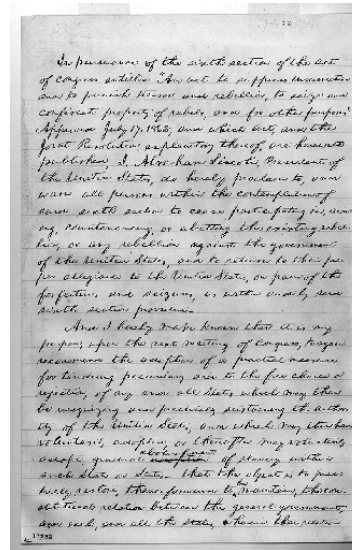 In pursuance of the sixth section of the act
of congress entitled "An act to suppress insurrection
and to punish treason and rebellion, to seize and
confiscate property of rebels, and for other purposes"
Approved July 17, 1862, and which act, and the
Joint Resolution explanatory thereof, are herewith
published, I, Abraham Lincoln, President of
the United States, do hereby proclaim to, and
warn all persons within the contemplation of
said sixth section to cease participating in, aid-
ing, countenancing, or abetting the existing rebel-
lion, or any rebellion against the government
of the United States, and to return to their pro-
per allegiance to the United States, on pain of the
forfeitures and seizures, as within and by said
sixth section provided.
And I hereby make known that it is my
purpose, upon the next meeting of Congress, to again
recommend the adoption of a practical measure
for tendering pecuniary aid to the free choice or
rejection, of any and all States which may then
be recognizing and practically sustaining the autho-
rity of the United States, and which may then have
voluntarily adopted, or thereafter may voluntarily
adopt, gradual abolishment of slavery within
such State or States. that the object is to prac-
tically restore, thenceforward to be maintain, the con-
stitutional relation between the general government,
and each, and all the states, wherein that relation